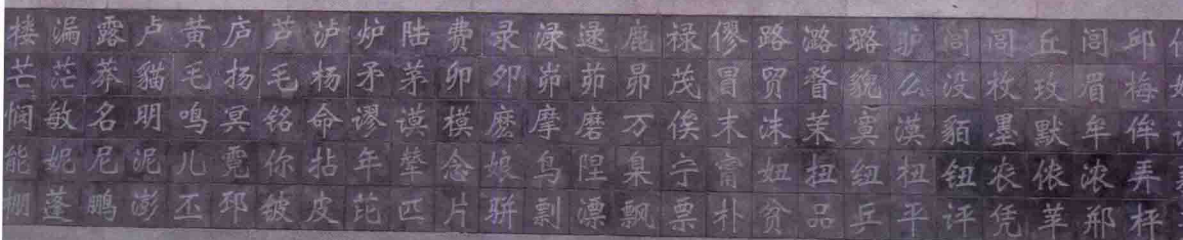 楼漏露卢黄庐芦泸炉陆费录渌逯鹿禄僇路潞璐驴闾闾丘闾邱
芒茫莽貓毛扬毛杨矛茅卯卯峁茆昴茂冒贸瞀貌么没枚玫眉梅
悯敏名明鸣冥铭命谬谟模麽摩磨万俟末沫茉寞漠貊墨默牟侔
能妮尼泥儿霓你拈年辇念娘鸟陧臬宁甯妞扭纽杻钮农侬浓弄
棚蓬鹏澎丕邳铍皮芘匹片骈剽漂飘票朴贫品乒平评凭苹郱枰